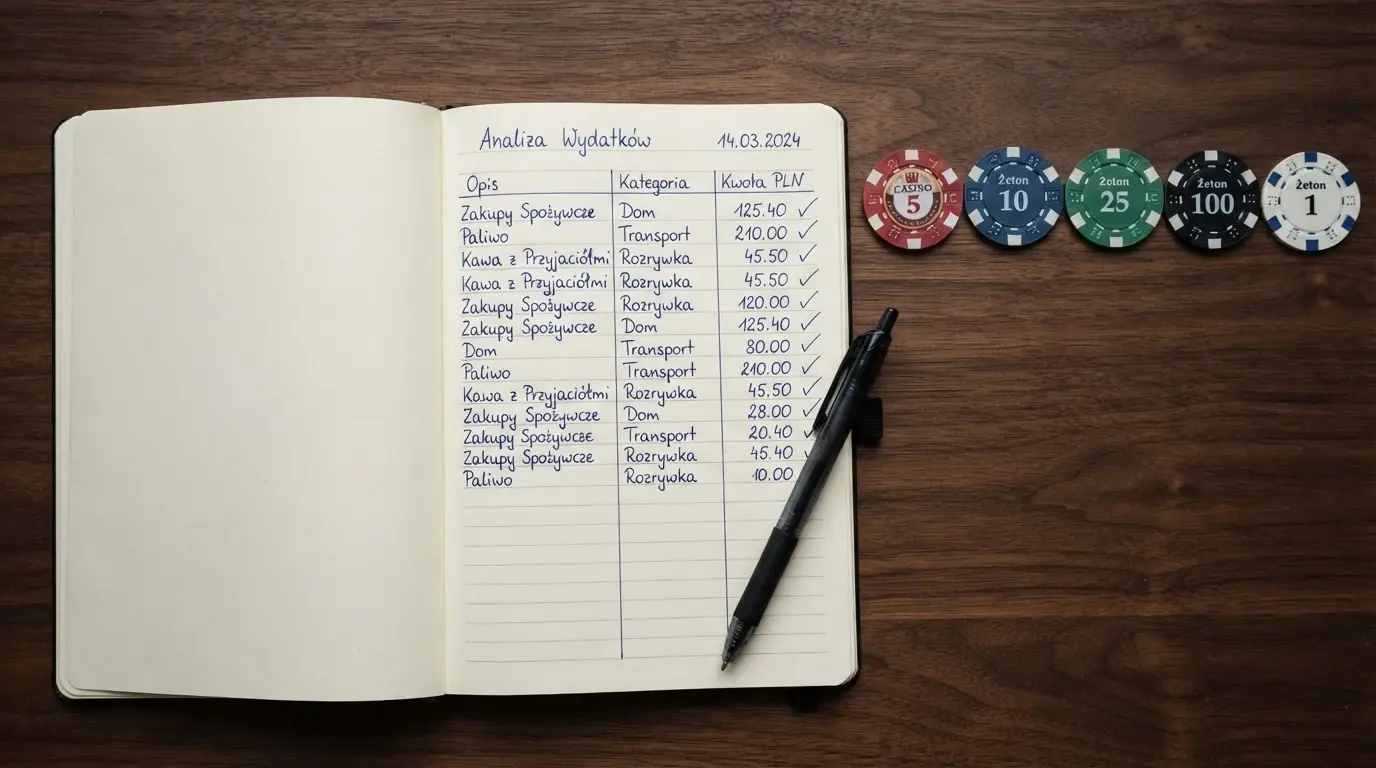 Analiza Wydatków 14.03.2024
Opis Kategoria Kwota PLN
Zakupy Spożywcze Dom 125.40 ✓
Paliwo Transport 210.00 ✓
Kawa z Przyjaciółmi Rozrywka 45.50 ✓
Kawa z Przyjaciółmi Rozrywka 45.50 ✓
Zakupy Spożywcze Rozrywka 120.00 ✓
Zakupy Spożywcze Dom 125.40 ✓
Dom Transport 80.00 ✓
Paliwo Transport 210.00 ✓
Kawa z Przyjaciółmi Rozrywka 45.50 ✓
Zakupy Spożywcze Dom 28.00 ✓
Zakupy Spożywcze Transport 20.40 ✓
Zakupy Spożywcze Rozrywka 45.40 ✓
Paliwo Rozrywka 10.00
CASINO
5
Żeton
10
Żeton
25
Żeton
100
Żeton
1